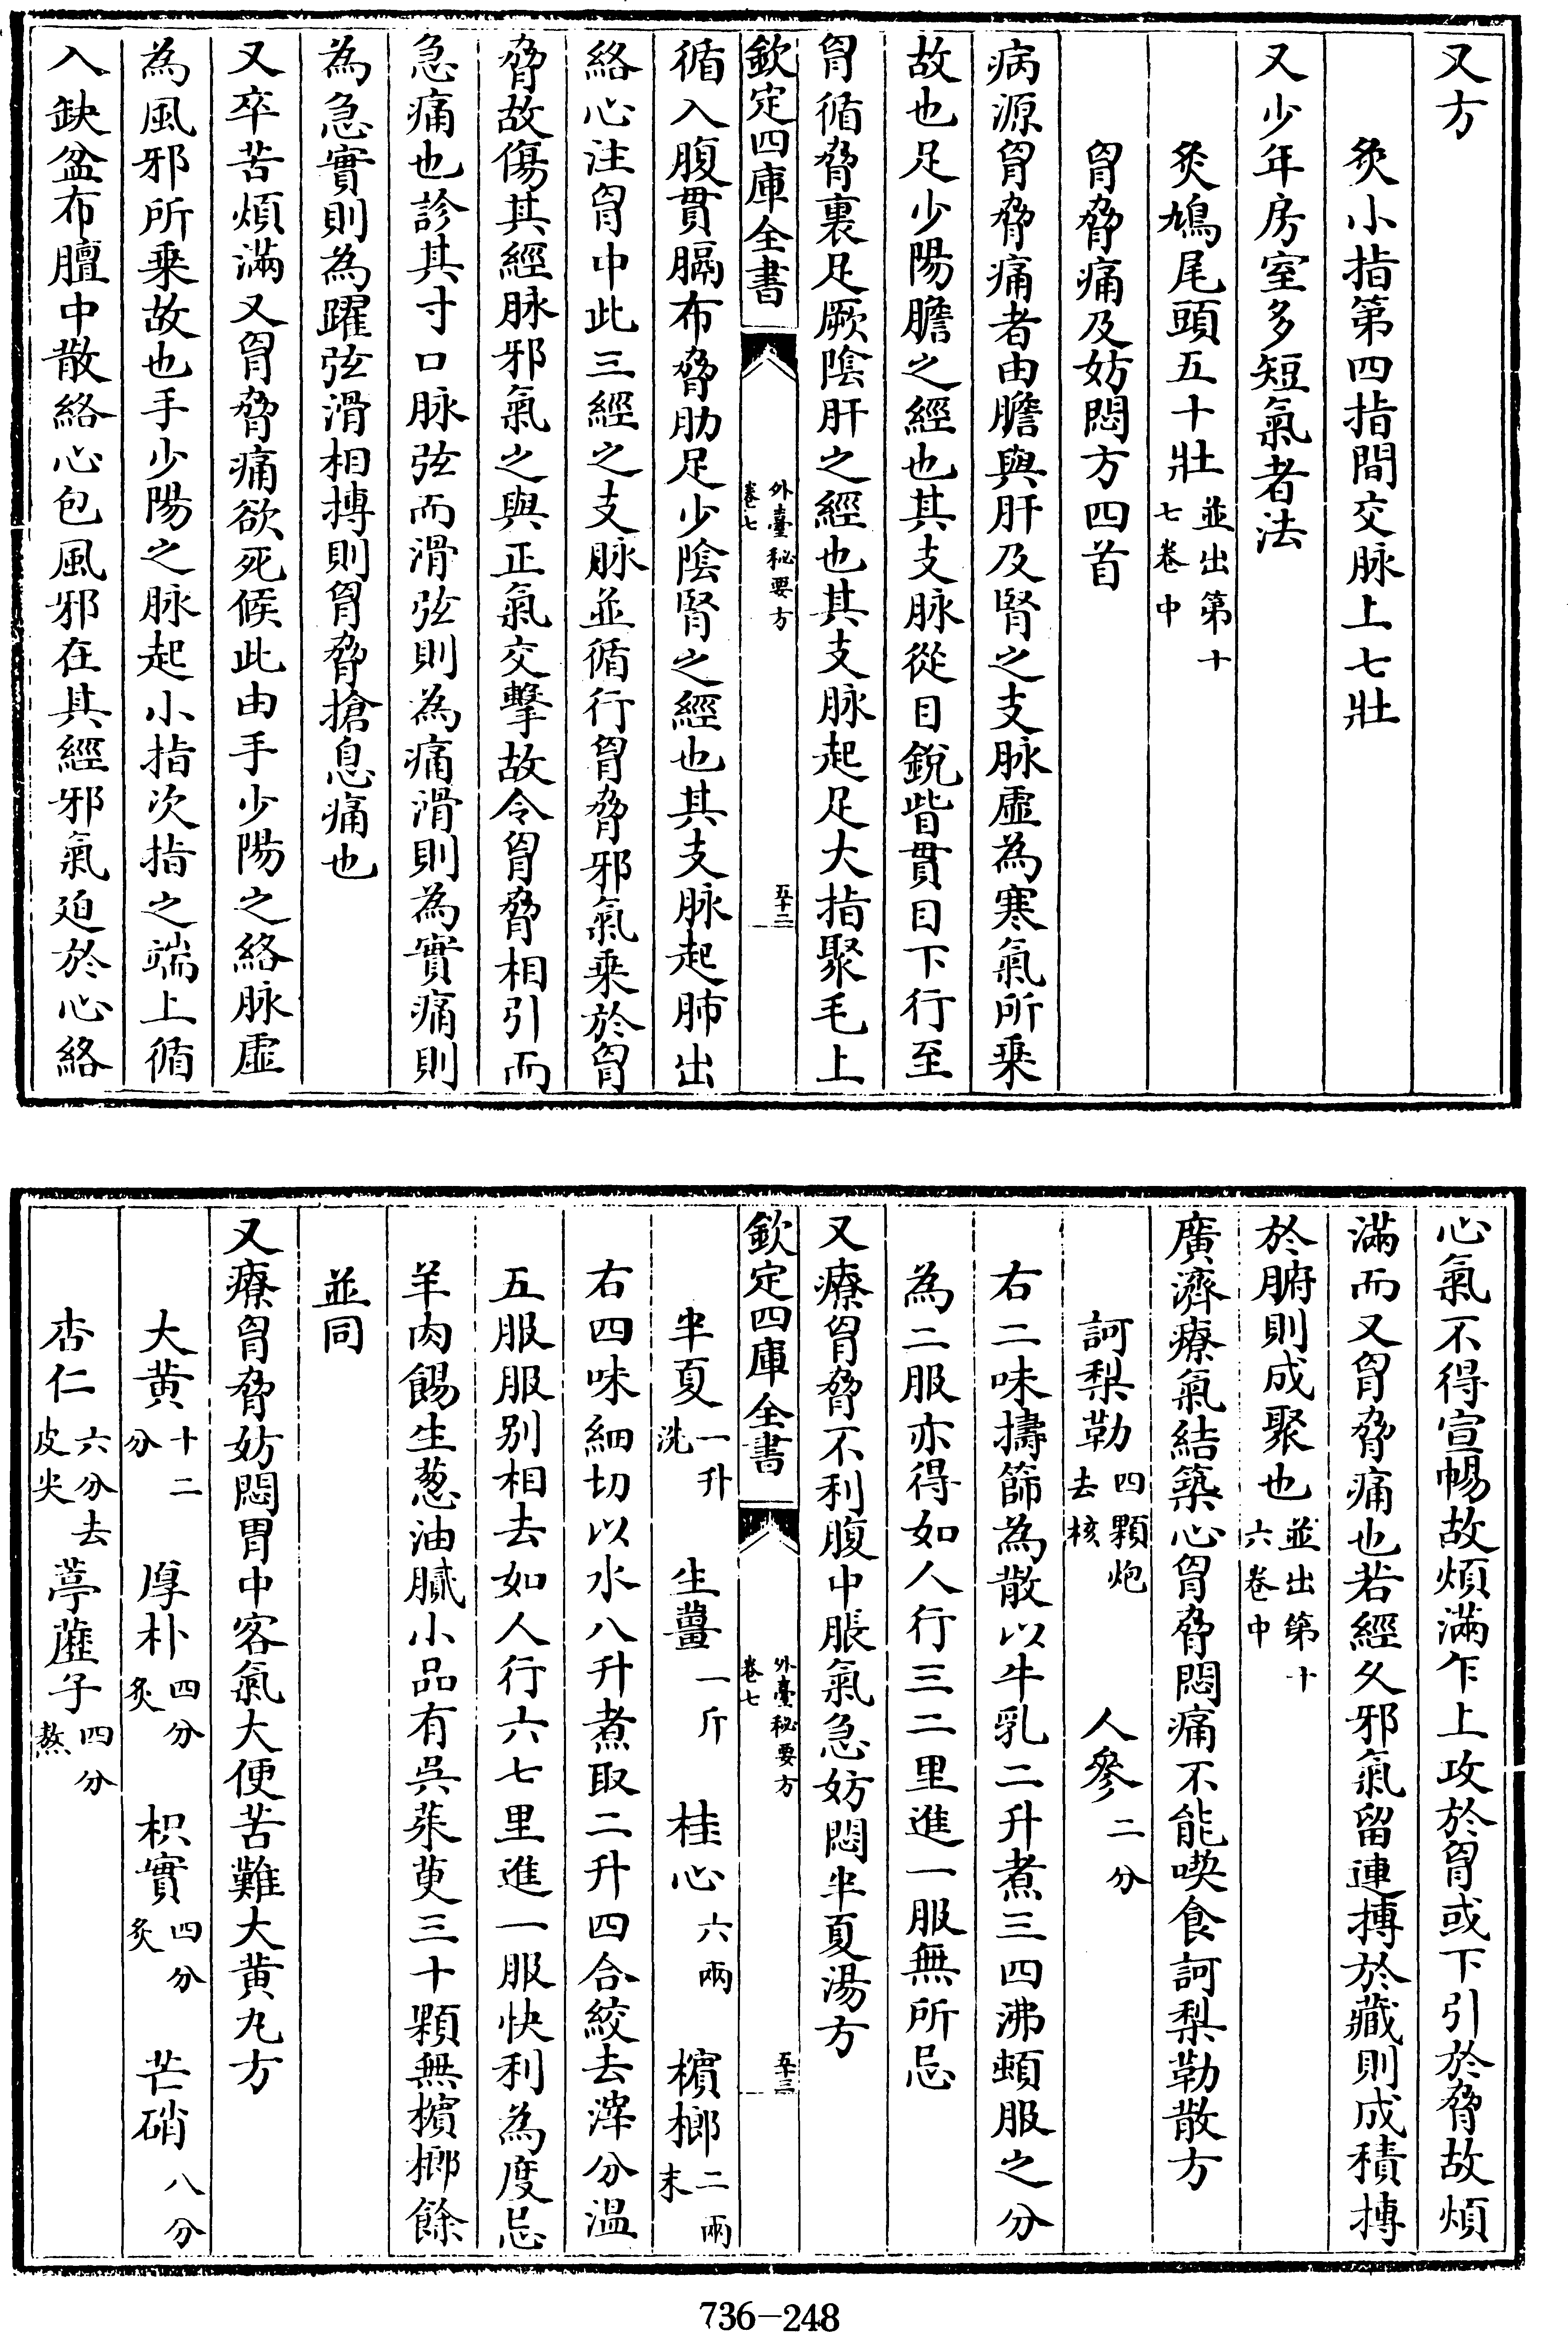 又方
灸小指第四指間交脉上七壯
又少年房室多短氣者法
灸鳩尾頭五十壯並出第十七卷中
胷脅痛及妨悶方四首
病源胷脅痛者由膽與肝及腎之支脉虛為寒氣所乗
故也足少陽膽之經也其支脉從目銳眥貫目下行至
胷循脅裏足厥陰肝之經也其支脉起足大指聚毛上
欽定四庫全書
外臺秘要方
卷七
五十二
循入腹貫膈布脅肋足少陰腎之經也其支脉起肺出
絡心注胷中此三經之支脉並循行胷脅邪氣乗於胷
脅故傷其經脉邪氣之與正氣交擊故令胷脅相引而
急痛也診其寸口脉弦而滑弦則為痛滑則為實痛則
為急實則為躍弦滑相搏則胷脅搶息痛也
又卒苦煩滿又胷脅痛欲死候此由手少陽之絡脉虛
為風邪所乗故也手少陽之脉起小指次指之端上循
入缺盆布膻中散絡心包風邪在其經邪氣廹於心絡
心氣不得宣暢故煩滿乍上攻於胷或下引於脅故煩
滿而又胷脅痛也若經乆邪氣留連搏於藏則成積搏
於腑則成聚也並出第十六卷中
廣濟療氣結築心胷脅悶痛不能喫食訶梨勒散方
訶梨勒四顆炮去核 人參二分
右二味擣篩為散以牛乳二升煮三四沸頓服之分
為二服亦得如人行三二里進一服無所忌
又療胷脅不利腹中脹氣急妨悶半夏湯方
欽定四庫全書
外臺秘要方
卷七
五十三
半夏一升洗 生薑一斤 桂心六兩 檳榔二兩末
右四味細切以水八升煮取二升四合絞去滓分温
五服服别相去如人行六七里進一服快利為度忌
羊肉餳生葱油膩小品有吳茱萸三十顆無檳榔餘
並同
又療胷脅妨悶胃中客氣大便苦難大黄丸方
大黄十二分 厚朴四分炙 枳實四分炙 芒硝八分
杏仁六分去皮尖 葶藶子四分熬
736-248